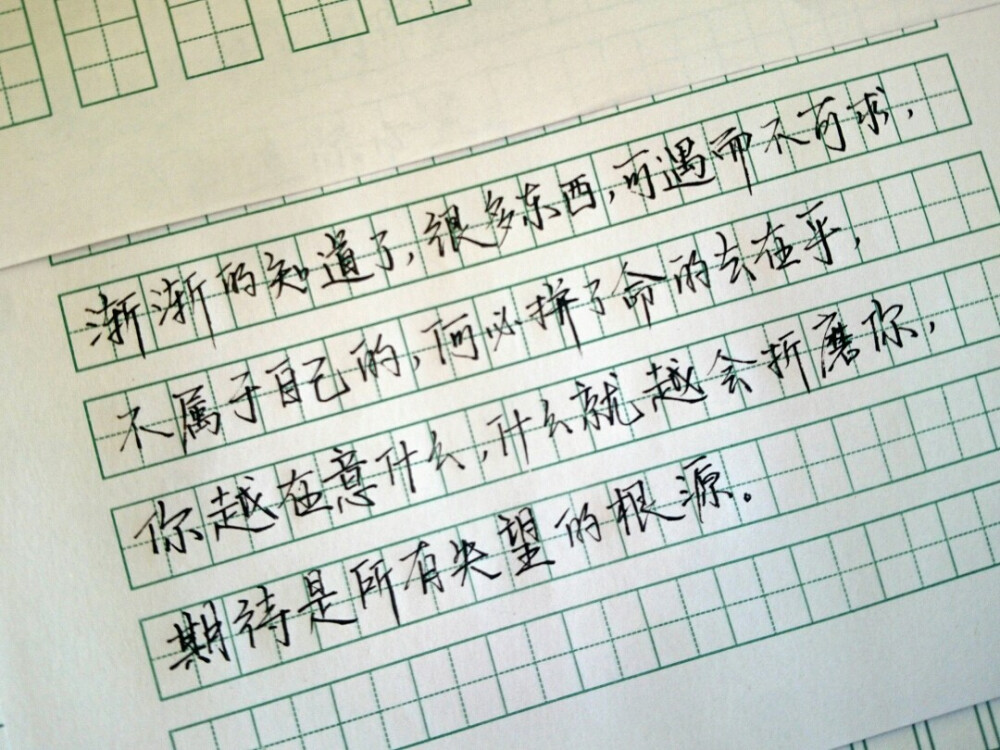 渐渐的知道了,很多东西,可遇而不可求,
不属于自己的,何必拼了命的去在乎,
你越在意什么,什么就越会折磨你,
期待是所有失望的根源。